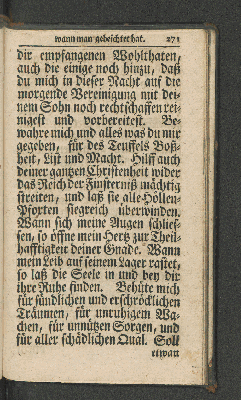 wann man gebeichtet hat. 271
dir empfangenen Wohlthaten,
auch die einige noch hinzu, daß
du mich in dieser Nacht auf die
morgende Vereinigung mit dei-
nem Sohn noch rechtschaffen rei-
nigest und vorbereitest. Be-
wahre mich und alles was du mir
gegeben, für des Teuffels Boß-
heit, List und Macht. Hilff auch
deiner gantzen Christenheit wider
das Reich der Finsterniß mächtig
streiten, und laß sie alle Höllen-
Pforten siegreich überwinden.
Wann sich meine Augen schlies-
sen, so öffne mein Hertz zur Theil-
hafftigkeit deiner Gnade. Wann
mein Leib auf seinem Lager rastet,
so laß die Seele in und bey dir
ihre Ruhe finden. Behüte mich
für sündlichen und erschröcklichen
Träumen, für unruhigem Wa-
chen, für unnützen Sorgen, und
für aller schädlichen Qual. Soll
etwan